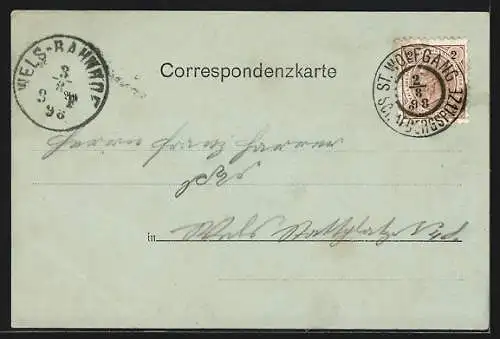 WELS-BAHNHOF
3
8
98
Correspondenzkarte
2 2
ST. WOLFGANG
2
8
98
SCHAFBERGSPITZE
Herrn Franz Harrer
in Wels Stadtplatz